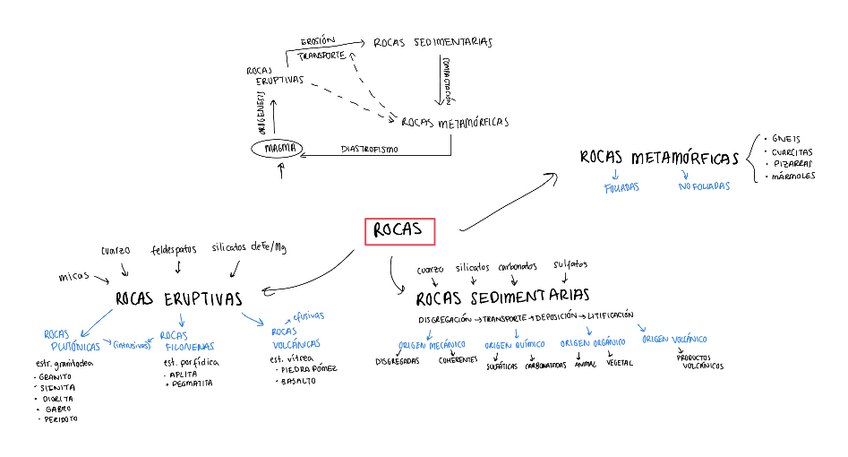 EROSIÓN
TRANSPORTE
ROCAS SEDIMENTARIAS
ROCAS
ERUPTIVAS
COMPACTACIÓN
OROGENESIS
ROCAS METAMÓRFICAS
MAGMA
DIASTROFISMO
ROCAS METAMÓRFICAS
FOLIADAS
NO FOLIADAS
• GNEIS
• CUARCITAS
• PIZARRAS
• MÁRMOLES
ROCAS
micas
cuarzo
feldespatos
silicatos de Fe/Mg
ROCAS ERUPTIVAS
ROCAS
PLUTÓNICAS
(intrusivas)
ROCAS
FILONENAS
efusivas
ROCAS
VOLCÁNICAS
estr. granitodea
• GRANITO
• SIENITA
• DIORITA
• GABRO
• PERIDOTO
est. porfídica
• APLITA
• PEGMATITA
est. vítrea
• PIEDRA PÓMEZ
• BASALTO
cuarzo
silicatos
carbonatos
sulfatos
ROCAS SEDIMENTARIAS
DISGREGACIÓN → TRANSPORTE → DEPOSICIÓN → LITIFICACIÓN
ORIGEN MECÁNICO
ORIGEN QUÍMICO
ORIGEN ORGÁNICO
ORIGEN VOLCÁNICO
DISGREGADAS
COHERENTES
SULFÁTICAS
CARBONATADAS
ANIMAL
VEGETAL
PRODUCTOS
VOLCÁNICOS